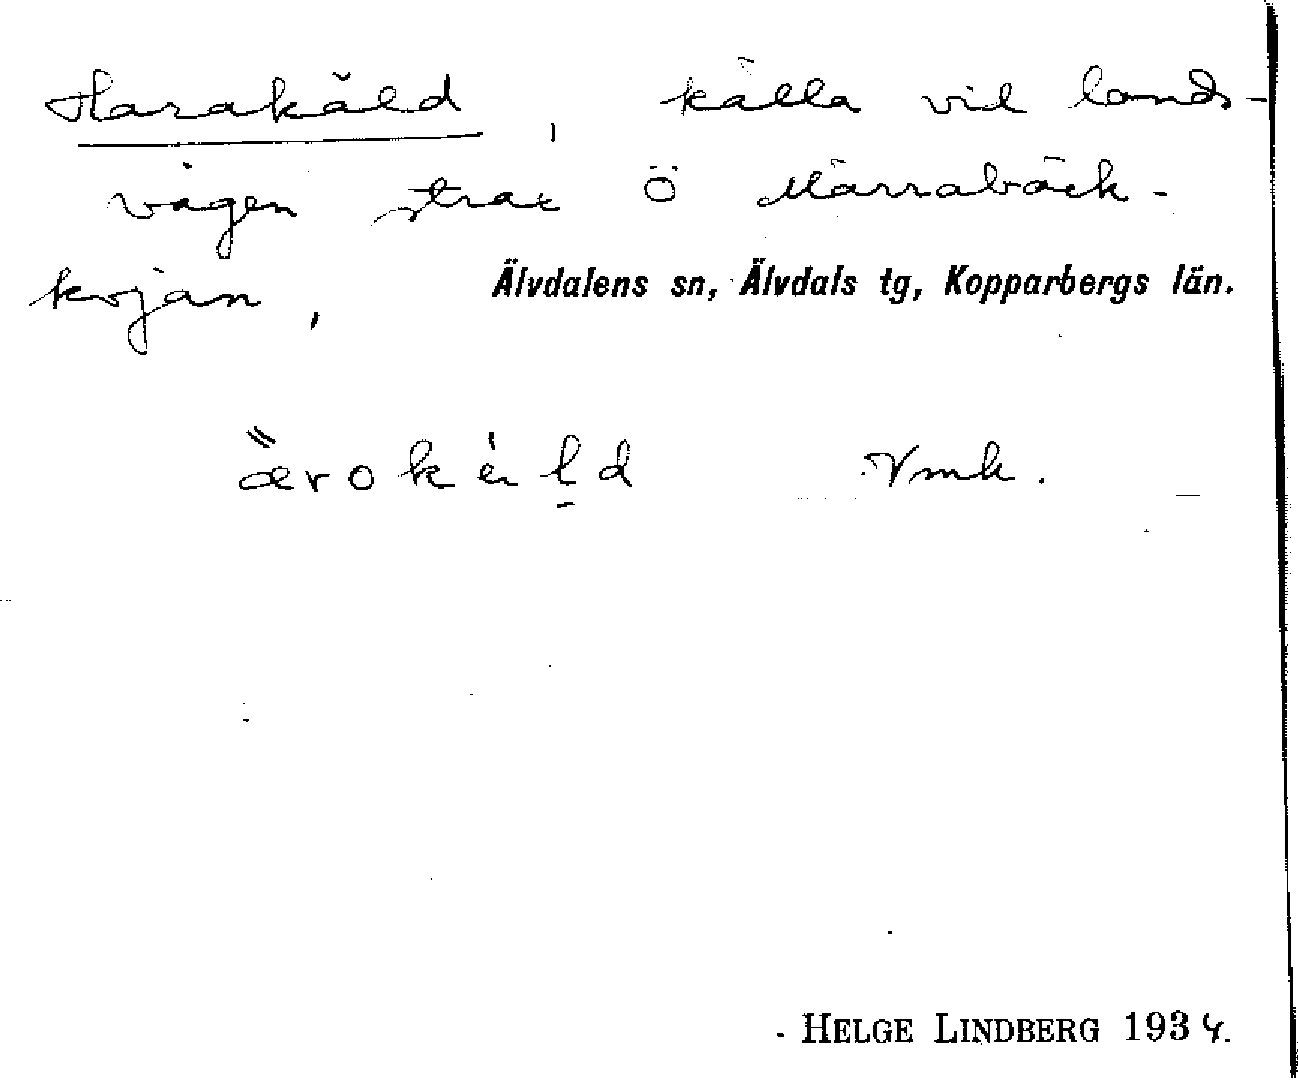 Harakäld, källa vil lands-
vägen strax Ö Märrabäck-
kojan,
Älvdalens sn, Älvdals tg, Kopparbergs län.
Vmk.
HELGE LINDBERG 1934.